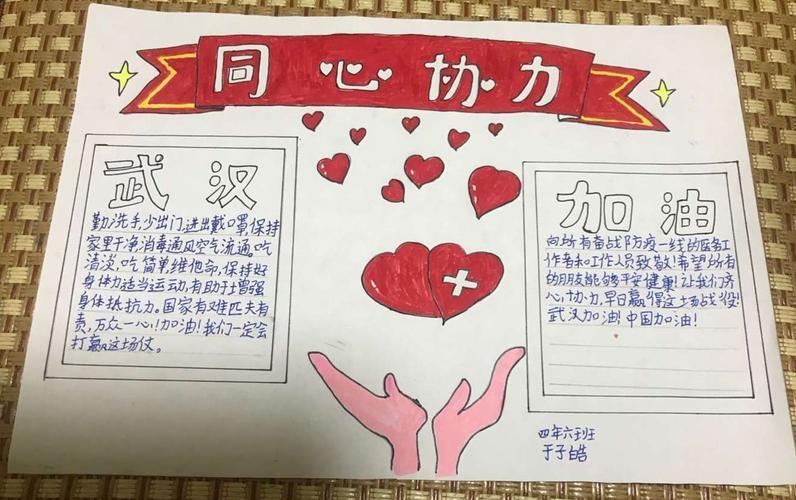 同心协力
武汉
勤洗手,少出门,进出戴口罩,保持
家里干净,消毒通风空气流通。吃
清淡,吃简单维他命,保持好
身体力适当运动,有助于增强
身体抵抗力。国家有难匹夫有
责,万众一心!加油!我们一定会
打赢这场仗。
加油
向所有奋战防疫一线的医务工
作者和工作人员致敬!希望所有
的朋友能够平安健康!让我们齐
心,协力,早日赢得这场战役!
武汉加油!中国加油!
四年六班
于子皓